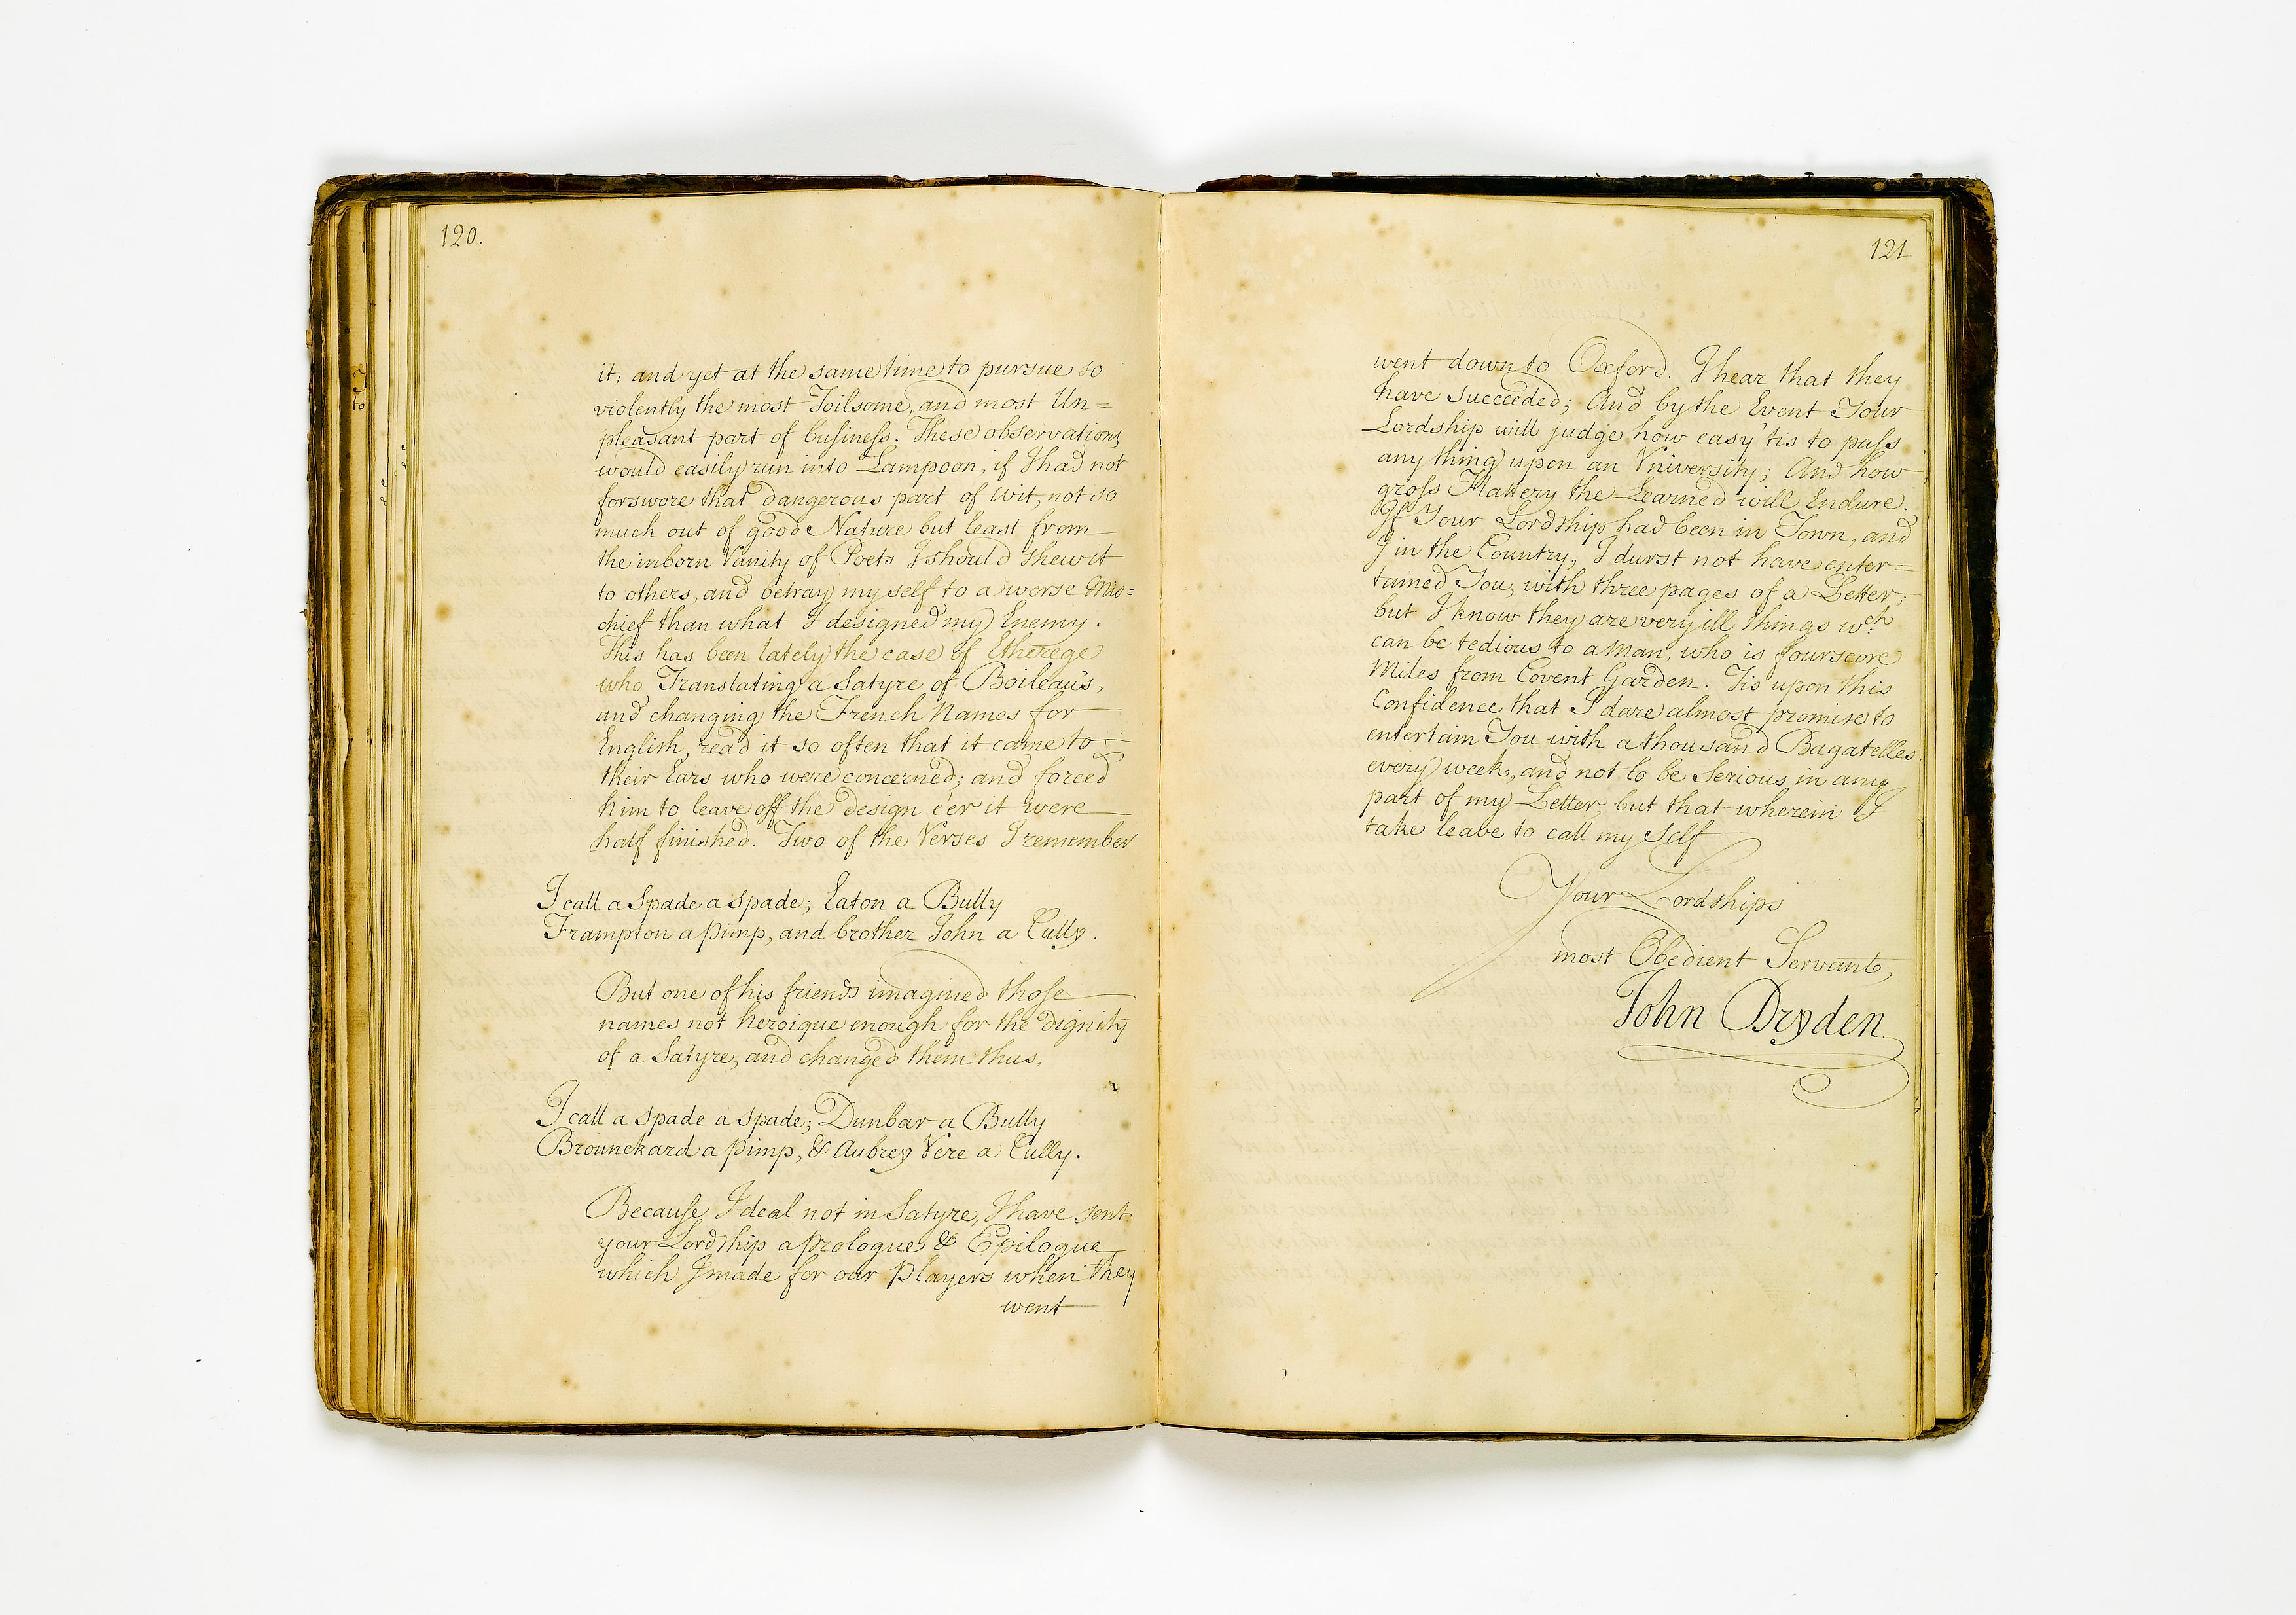 120.
it; and yet at the same time to pursue so
violently the most Toilsome, and most Un=
pleasant part of busineſs. These observations
would easily run into Lampoon, if I had not
forswore that dangerous part of wit, not so
much out of good Nature but least from
the inborn Vanity of Poets I should shew it
to others, and betray my self to a worse Mis=
chief than what I designed my Enemy.
This has been lately the case of Etherege
who Translating a Satyre of Boileau's,
and changing the French Names for
English, read it so often that it came to
their Ears who were concerned; and forced
him to leave off the design e'er it were
half finished. Two of the Verses I remember
I call a Spade a Spade; Eaton a Bully
Frampton a pimp, and brother John a Cully.
But one of his friends imagined thoſe
names not heroique enough for the Dignity
of a Satyre, and changed them thus.
I call a Spade a Spade; Dunbar a Bully
Brounckard a pimp, & Aubrey Vere a Cully.
Becauſe I deal not in Satyre, I have sent
your Lordship a prologue & Epilogue
which I made for our players when they
went
121
went down to Oxford. I hear that they
have Succeeded; And by the Event Your
Lordship will judge how easy 'tis to paſs
any thing upon an Vniversity; And how
groſs Flattery the Learned will Endure.
If Your Lordship had been in Town, and
I in the Country, I durst not have enter=
tained You, with three pages of a Letter;
but I know they are very ill things wch
can be tedious to a man, who is fourscore
Miles from Covent Garden. Tis upon this
Confidence that I dare almost promise to
entertain You with a thousand Bagatelles
every week, and not to be Serious in any
part of my Letter, but that wherein I
take leave to call my Self
Your Lordships
most Obedient Servant,
John Dryden